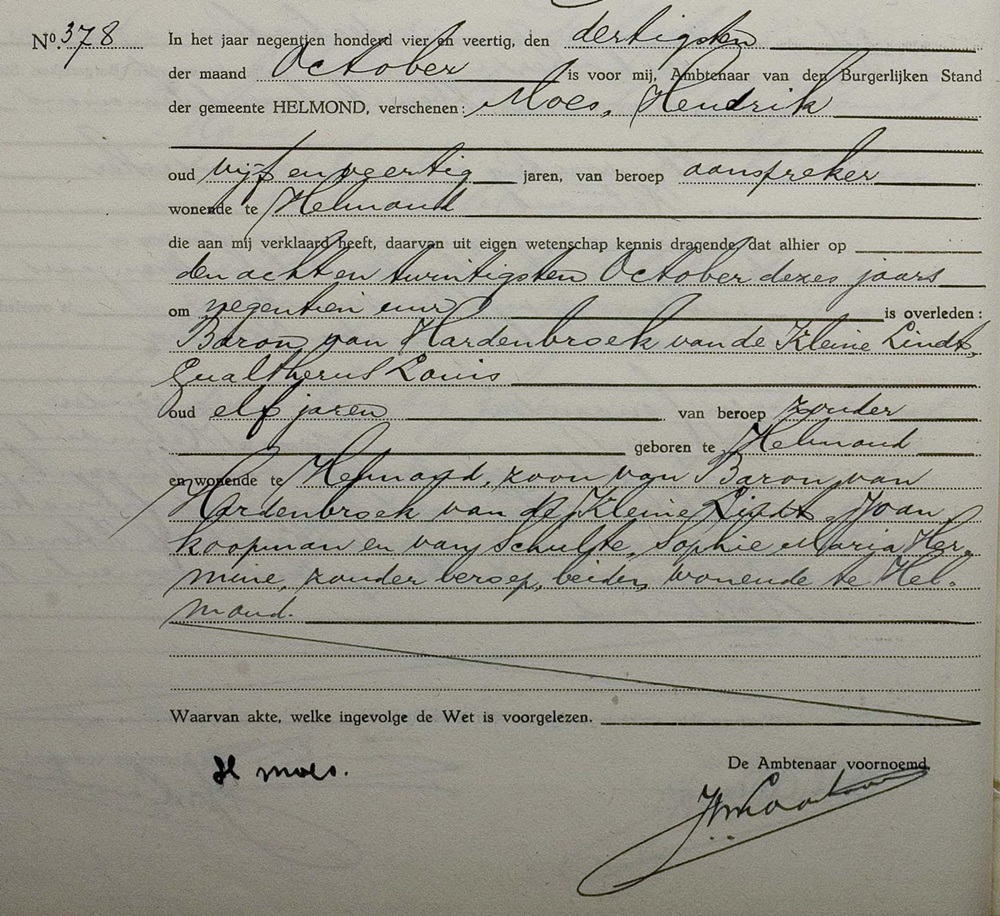 No. 378 In het jaar negentien honderd vier en veertig, den dertigsten
der maand October is voor mij, Ambtenaar van den Burgerlijken Stand
der gemeente HELMOND, verschenen: Moes, Hendrik
oud vijf en veertig jaren, van beroep aanspreker
wonende te Helmond
die aan mij verklaard heeft, daarvan uit eigen wetenschap kennis dragende, dat alhier op
den acht en twintigsten October dezes jaars
om negentien uur is overleden:
Baron van Hardenbroek van de Kleine Lindt,
Gualtherus Louis
oud elf jaren van beroep zonder
geboren te Helmond
en wonende te Helmond, zoon van Baron van
Hardenbroek van de Kleine Lindt, Joan,
koopman en van Schulte, Sophie Maria Her-
mine, zonder beroep, beiden wonende te Hel-
mond.
Waarvan akte, welke ingevolge de Wet is voorgelezen.
De Ambtenaar voornoemd
H moes.